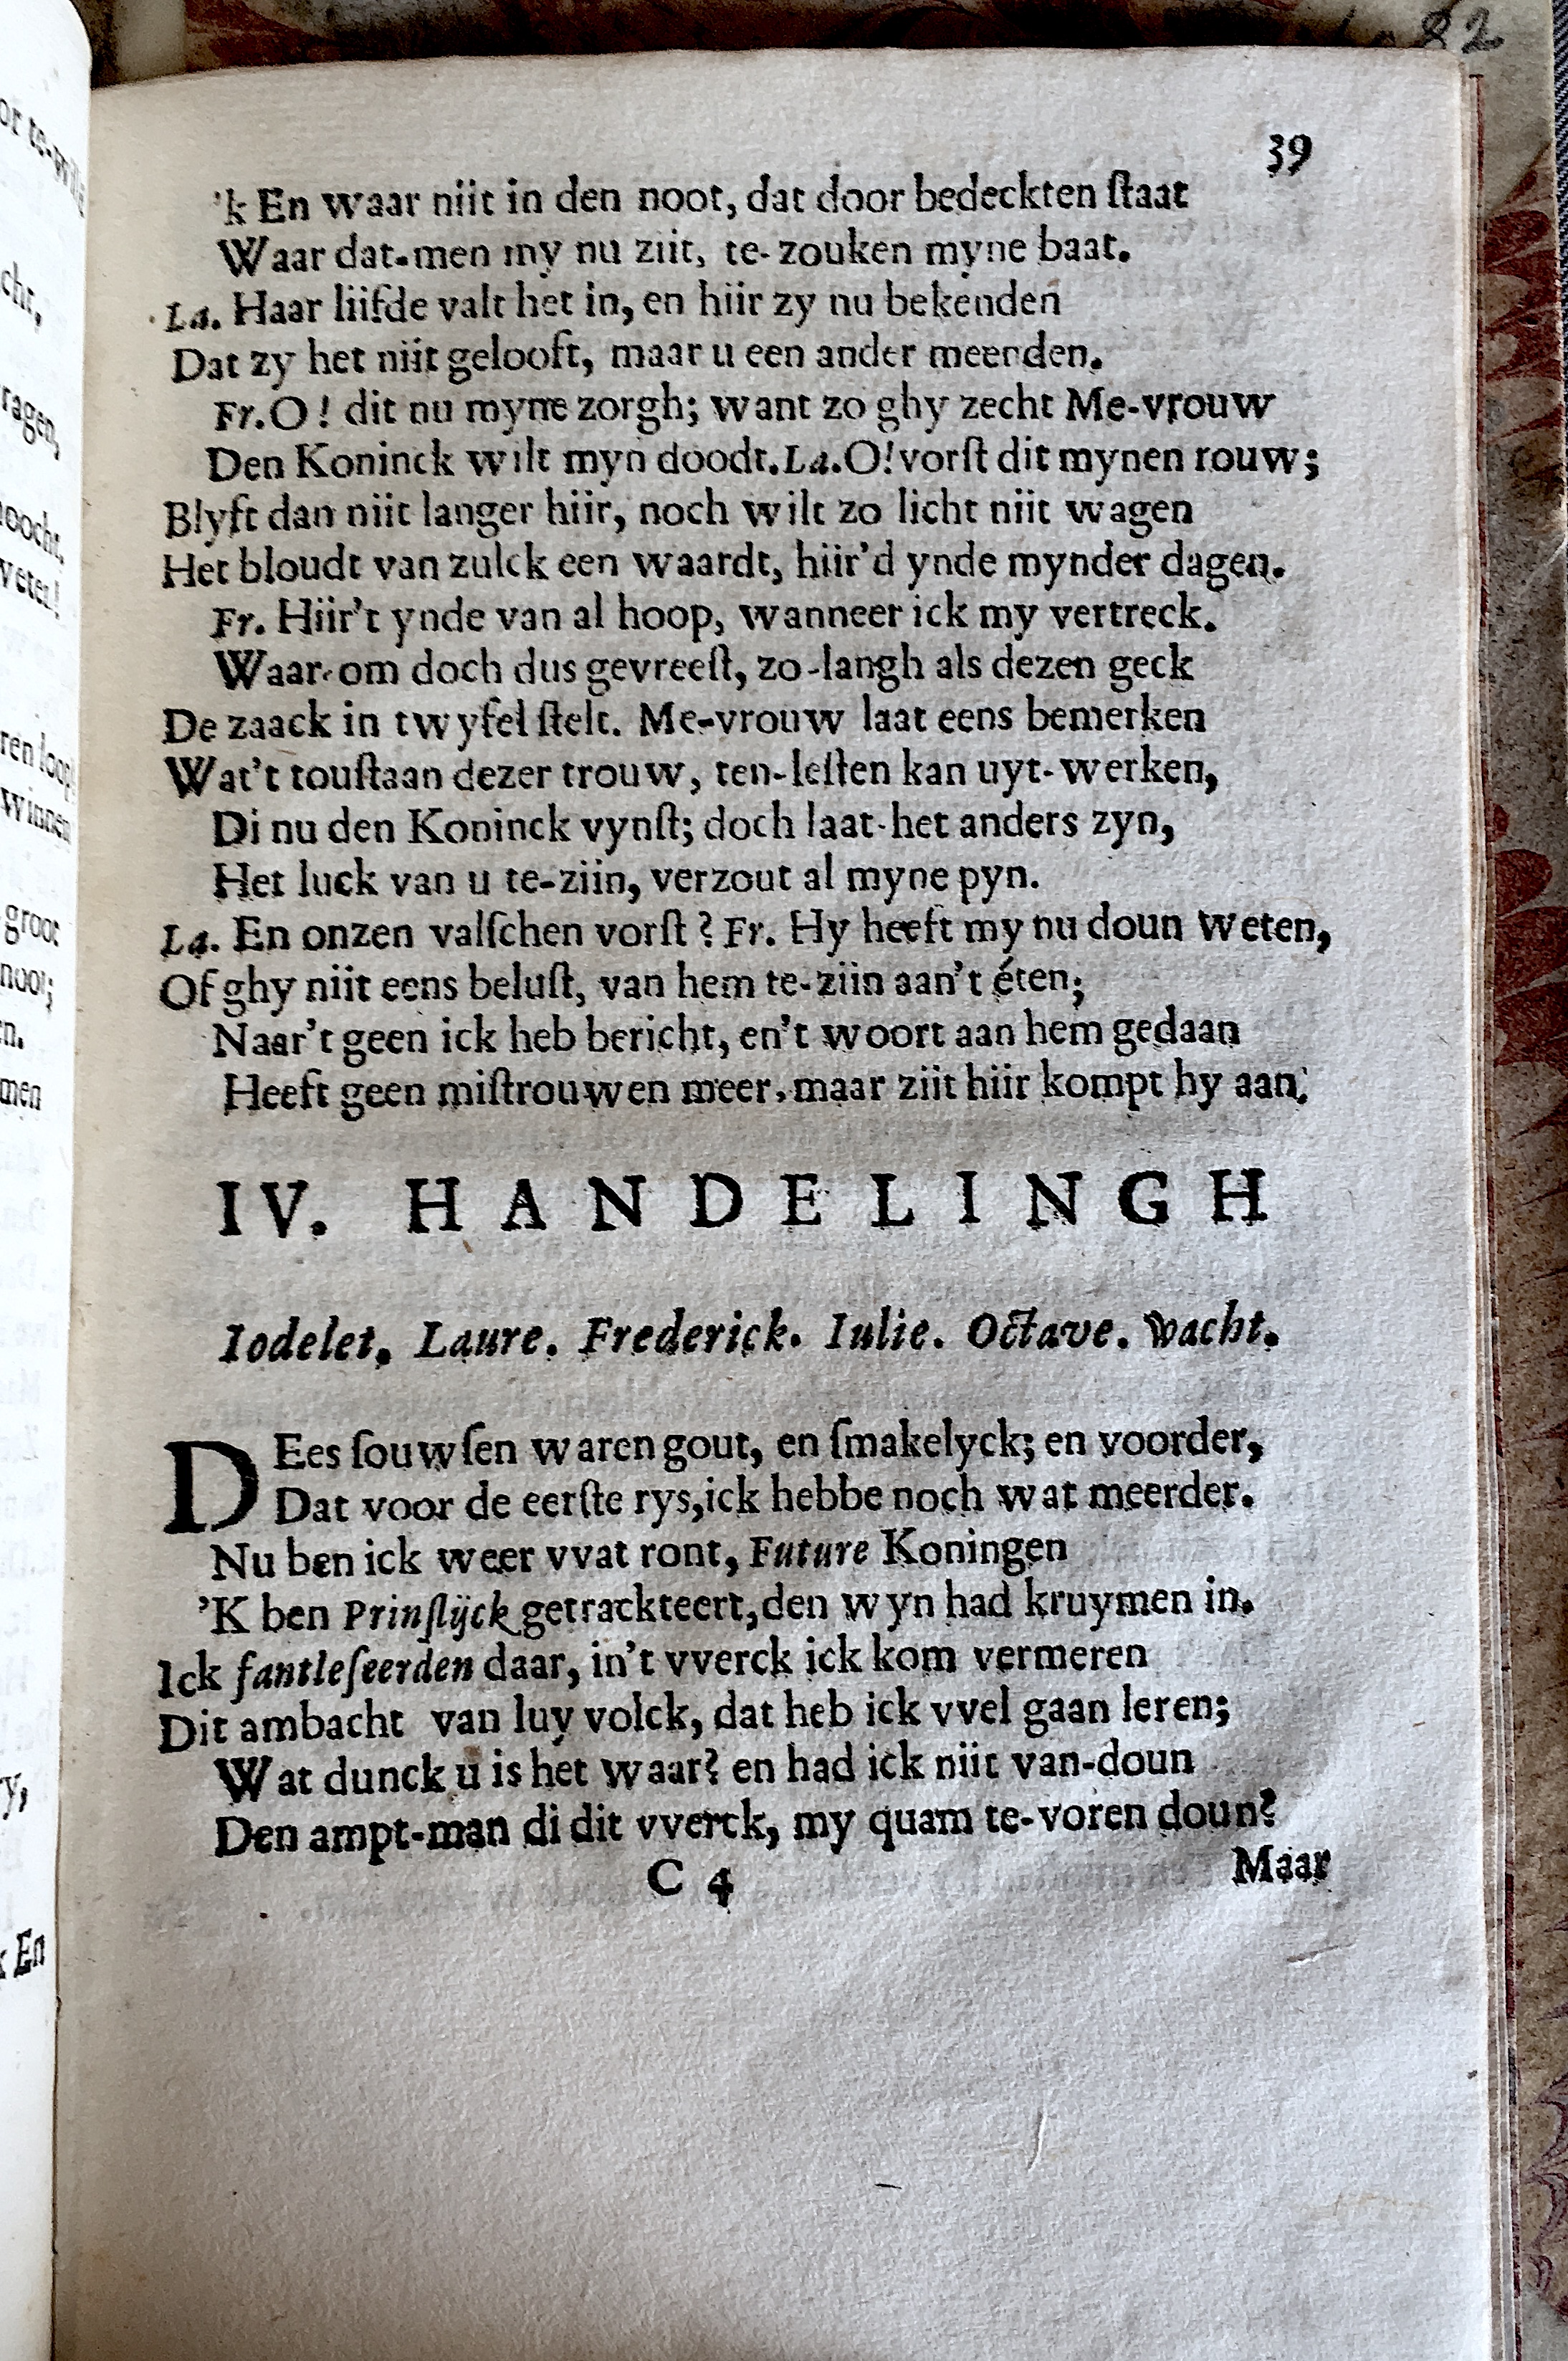 82
39
'k En waar niit in den noot, dat door bedeckten ſtaat
Waar dat-men my nu ziit, te-zouken myne baat.
La. Haar liifde valt het in, en hiir zy nu bekenden
Dat zy het niit gelooft, maar u een ander meenden.
Fr. O! dit nu myne zorgh; want zo ghy zecht Me-vrouw
Den Koninck wilt myn doodt. La. O! vorſt dit mynen rouw;
Blyft dan niit langer hiir, noch wilt zo licht niit wagen
Het bloudt van zulck een waardt, hiir'd ynde mynder dagen.
Fr. Hiir't ynde van al hoop, wanneer ick my vertreck.
Waar-om doch dus gevreeſt, zo-langh als dezen geck
De zaack in twyfel ſtelt. Me-vrouw laat eens bemerken
Wat't touſtaan dezer trouw, ten-leſten kan uyt-werken,
Di nu den Koninck vynſt; doch laat-het anders zyn,
Het luck van u te-ziin, verzout al myne pyn.
La. En onzen valſchen vorſt? Fr. Hy heeft my nu doun weten,
Of ghy niit eens beluſt, van hem te-ziin aan't éten;
Naar't geen ick heb bericht, en't woort aan hem gedaan
Heeft geen miſtrouwen meer, maar ziit hiir kompt hy aan.
IV. HANDELINGH
Iodelet. Laure. Frederick. Iulie. Octave. Wacht.
DEes ſouwſen waren gout, en ſmakelyck; en voorder,
Dat voor de eerſte rys, ick hebbe noch wat meerder.
Nu ben ick weer vvat ront, Future Koningen
'K ben Prinſlijck getrackteert, den wyn had kruymen in.
Ick fantleſeerden daar, in't vverck ick kom vermeren
Dit ambacht van luy volck, dat heb ick vvel gaan leren;
Wat dunck u is het waar? en had ick niit van-doun
Den ampt-man di dit vverck, my quam te-voren doun?
C 4 Maar